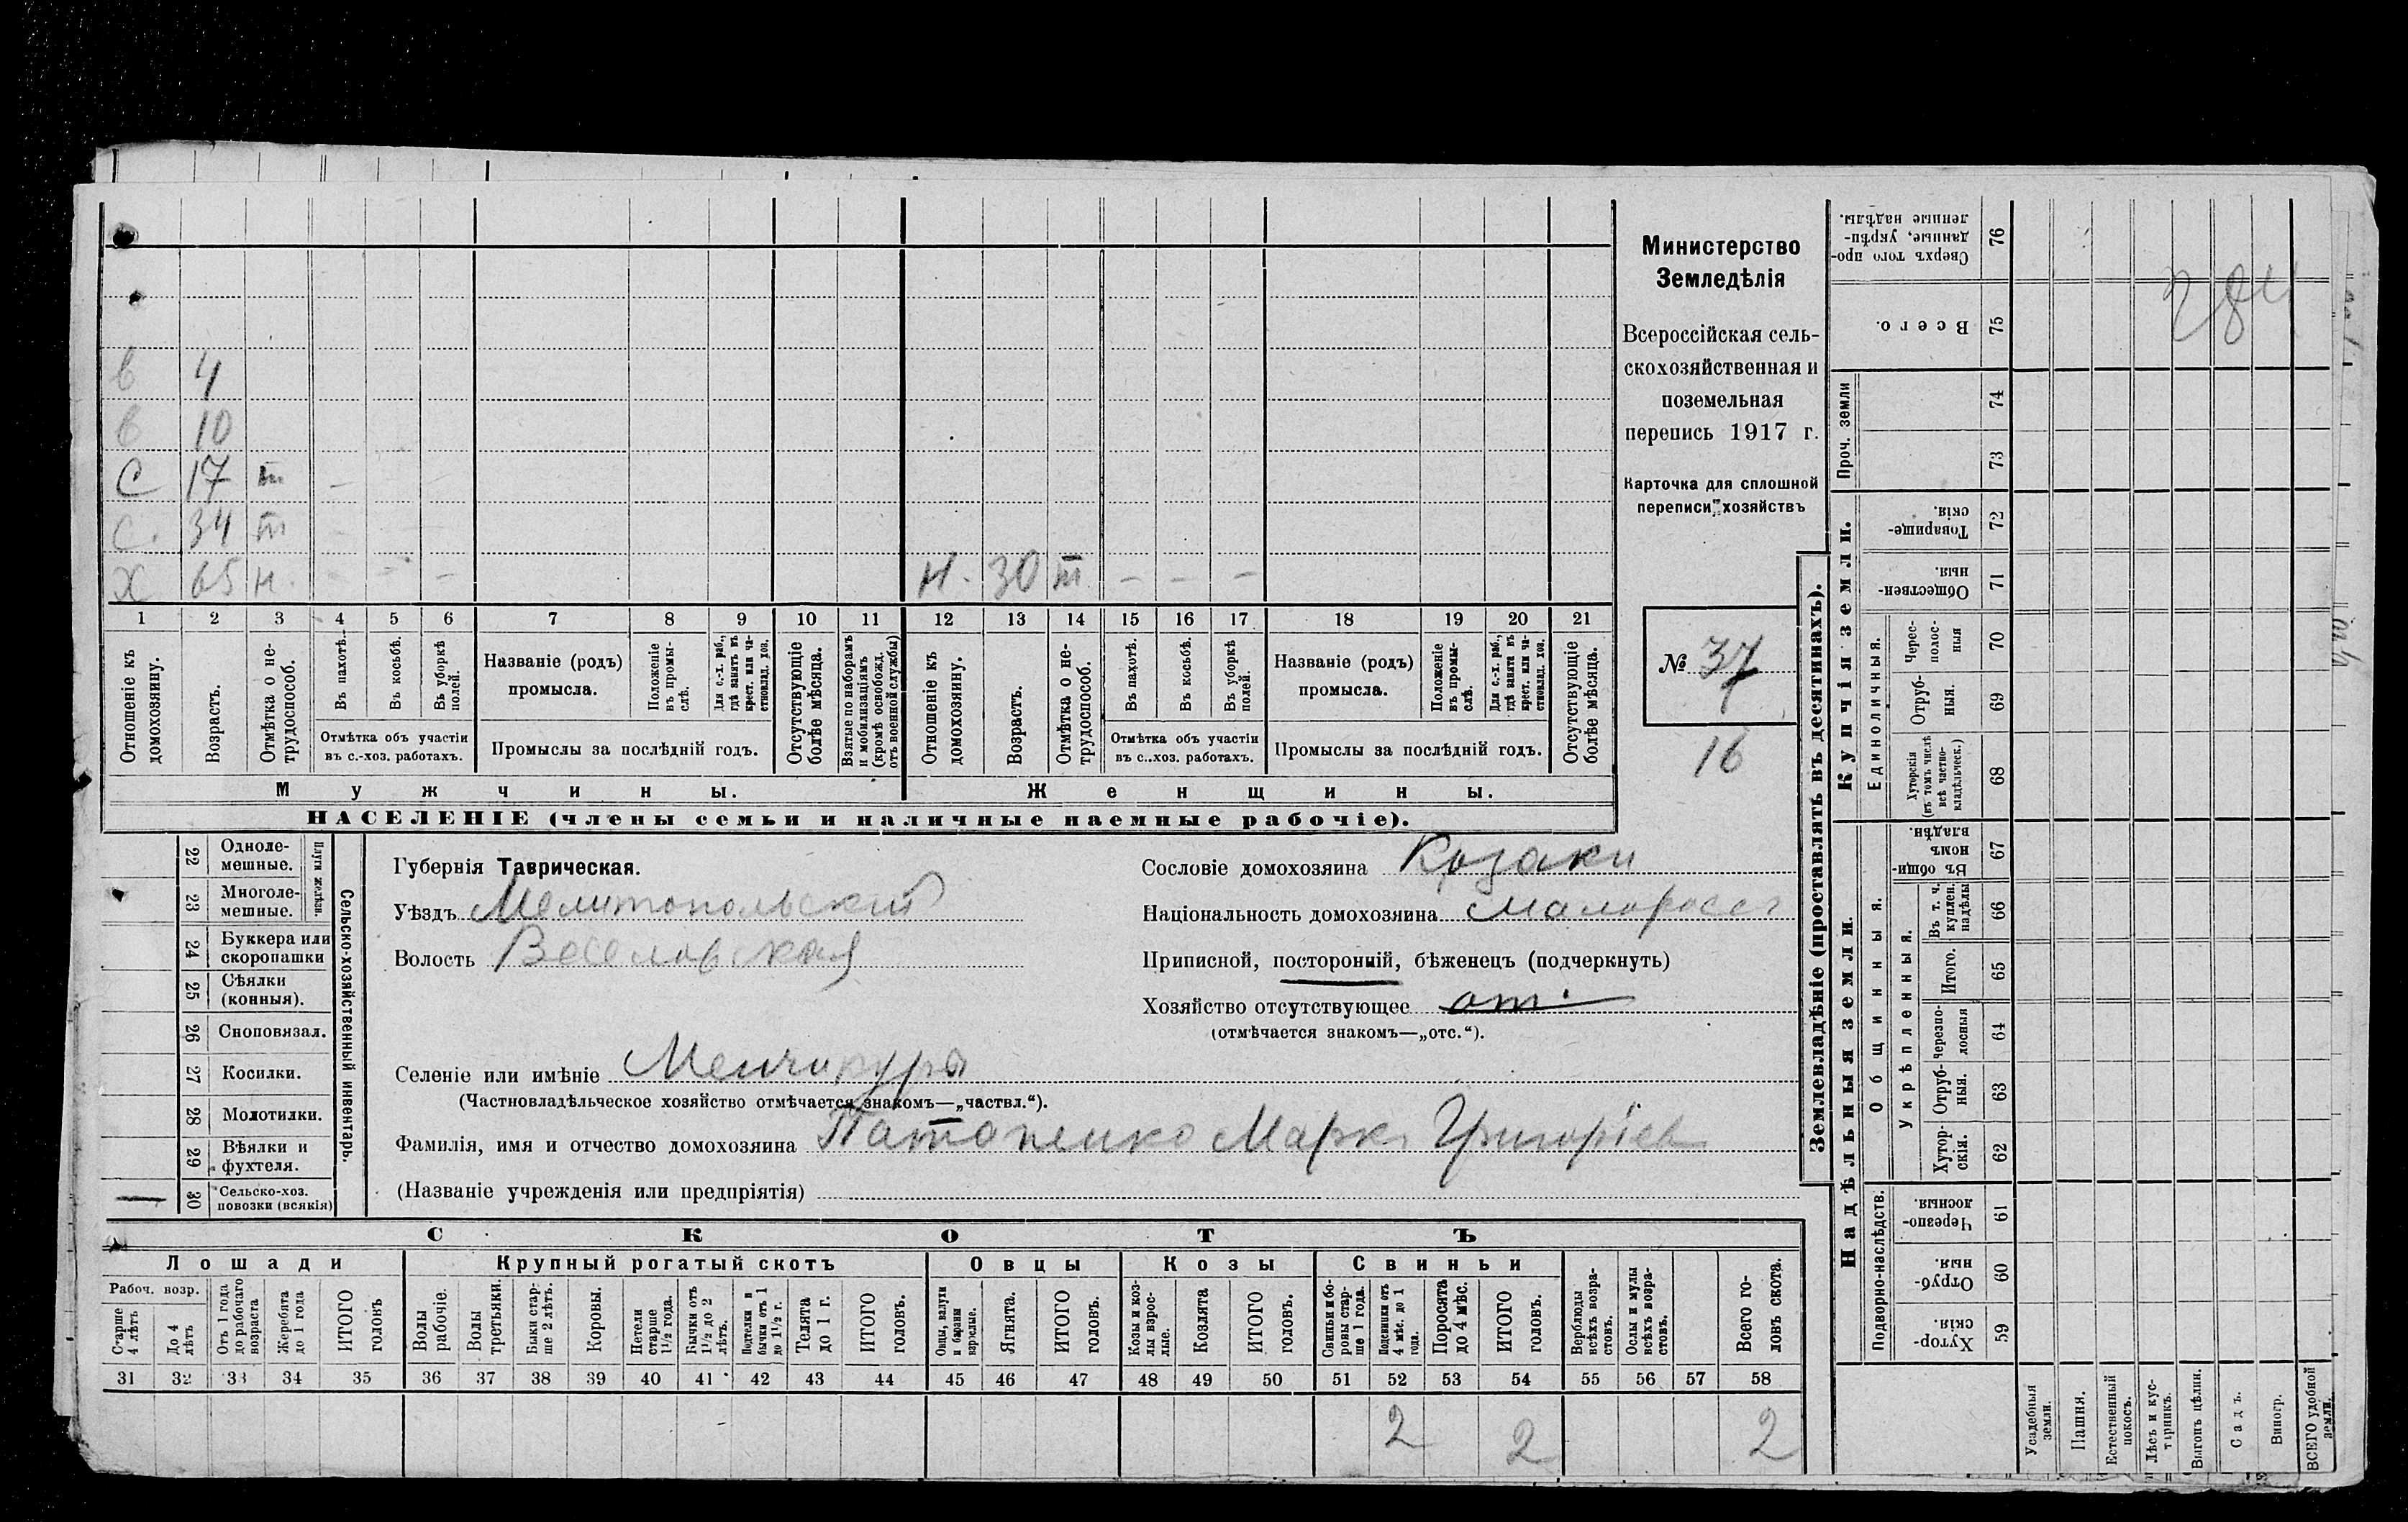 в 4
в 10
С 17 т
С. 34 т
Х 65 н. - - -
н. 30 т - - -
1 2 3 4 5 6 7 8 9 10 11 12 13 14 15 16 17 18 19 20 21
Отношеніе къ домохозяину.
Возрастъ.
Отмѣтка о не-трудоспособ.
Въ пахотѣ.
Въ косьбѣ.
Въ уборкѣ полей.
Отмѣтка объ участіи
въ с.-хоз. работахъ.
Названіе (родъ)
промысла.
Положеніе въ промы-слѣ.
Для с.-х. раб., гдѣ занятъ въ крест. или ча-стновлад. хоз.
Промыслы за послѣдній годъ.
Отсутствующіе болѣе мѣсяца.
Взятые по наборамъ и мобилизаціямъ (кромѣ освобожд. отъ военной службы)
Отношеніе къ домохозяину.
Возрастъ.
Отмѣтка о не-трудоспособ.
Въ пахотѣ.
Въ косьбѣ.
Въ уборкѣ полей.
Отмѣтка объ участіи
въ с..хоз. работахъ.
Названіе (родъ)
промысла.
Положеніе въ промы-слѣ.
Для с.-х. раб., гдѣ занята въ крест. или ча-стновлад. хоз.
Промыслы за послѣдній годъ.
Отсутствующіе болѣе мѣсяца.
Мужчины.
Женщины.
НАСЕЛЕНІЕ (члены семьи и наличные наемные рабочіе).
Министерство
Земледѣлія
Всероссійская сель-
скохозяйственная и
поземельная
перепись 1917 г.
Карточка для сплошной
переписи хозяйствъ
№ 37
16
Сельско-хозяйственный инвентарь.
Плуги желѣзн.
22 Одноле-
мешные.
23 Многоле-
мешные.
24 Буккера или
скоропашки
25 Сѣялки
(конныя).
26 Сноповязал.
27 Косилки.
28 Молотилки.
29 Вѣялки и
фухтеля.
30 Сельско-хоз.
повозки (всякія)
Губернія Таврическая.
Уѣздъ Мелитопольскій
Волость Веселовская
Сословіе домохозяина Козаки
Національность домохозяина Малоросс
Приписной, посторонній, бѣженецъ (подчеркнуть)
Хозяйство отсутствующее от.
(отмѣчается знакомъ—„отс.“).
Селеніе или имѣніе Менчикуры
(Частновладѣльческое хозяйство отмѣчается знакомъ—„частвл.“).
Фамилія, имя и отчество домохозяина Патапенко Марк Григоріев
(Названіе учрежденія или предпріятія)
СКОТЪ
Лошади
Крупный рогатый скотъ
Овцы
Козы
Свиньи
Рабоч. возр.
Старше 4 лѣтъ
До 4 лѣтъ
Отъ 1 года до рабочаго возраста
Жеребята до 1 года
ИТОГО головъ
Волы рабочіе.
Волы третьяки.
Быки стар-ше 2 лѣтъ.
Коровы.
Нетели старше 1½ года.
Бычки отъ 1½ до 2 лѣтъ.
Подтелки и бычки отъ 1 до 1½ г.
Телята до 1 г.
ИТОГО головъ.
Овцы, валухи и бараны взрослые.
Ягнята.
ИТОГО головъ.
Козы и коз-лы взрос-лые.
Козлята
ИТОГО головъ.
Свиньи и бо-ровы стар-ше 1 года.
Подсвинки отъ 4 мѣс. до 1 года.
Поросята до 4 мѣс.
ИТОГО головъ.
Верблюды всѣхъ возра-стовъ.
Ослы и мулы всѣхъ возра-стовъ.
Всего го-ловъ скота.
31 32 33 34 35 36 37 38 39 40 41 42 43 44 45 46 47 48 49 50 51 52 53 54 55 56 57 58
2 2 2
Землевладѣніе (проставлять въ десятинахъ).
Купчія земли.
Надѣльныя земли.
Сверхъ того про-данные, укрѣп-ленные надѣлы. 76
Всего. 75
Проч. земли
74
73
Товарище-скія. 72
Обществен-ныя. 71
Единоличныя.
Черес-полос-ныя 70
Отруб-ныя. 69
Хуторскія (въ томъ числѣ всѣ частно-владѣльческ.) 68
Общинныя.
Въ общи-номъ владѣн. 67
Укрѣпленныя.
Въ т. ч. куплен. надѣлы 66
Итого. 65
Черезпо-лосныя 64
Отруб-ныя. 63
Хутор-скія. 62
Подворно-наслѣдств.
Черезпо-лосныя 61
Отруб-ныя. 60
Хутор-скія. 59
Усадебныя земли.
Пашня.
Естественный покосъ.
Лѣсъ и кус-тарникъ.
Выгонъ цѣлин.
Садъ.
Виногр.
ВСЕГО удобной земли.